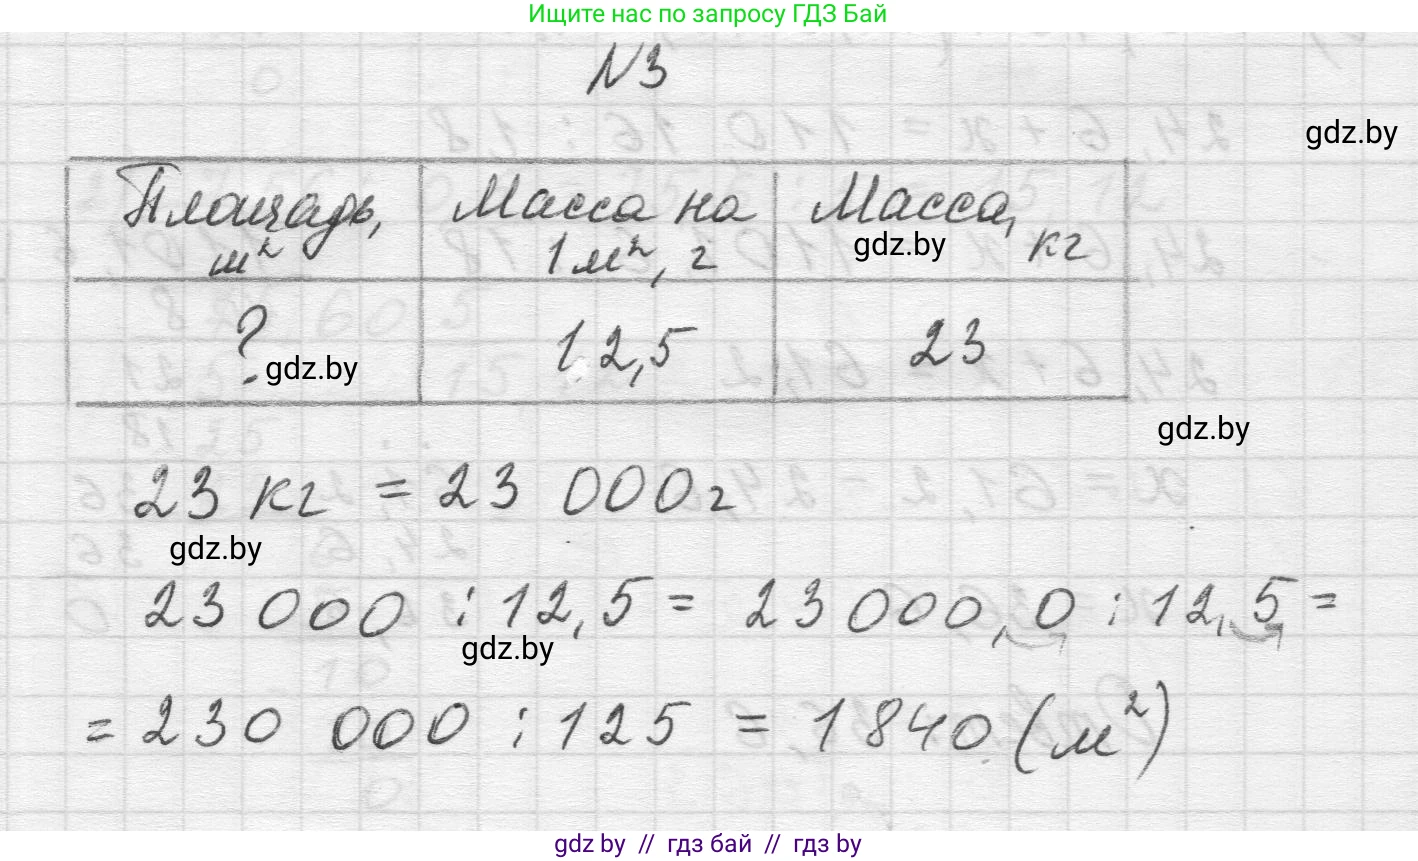 Ищите нас по запросу ГДЗ Бай
N3
gdz.by
Площадь, м²
Масса на 1м², г
Масса, кг
gdz.by
?
12,5
23
gdz.by
gdz.by
23 кг = 23 000 г
gdz.by
23 000 : 12,5 = 23 000,0 : 12,5 =
gdz.by
= 230 000 : 125 = 1840 (м²)
gdz by // гдз бай // гдз by